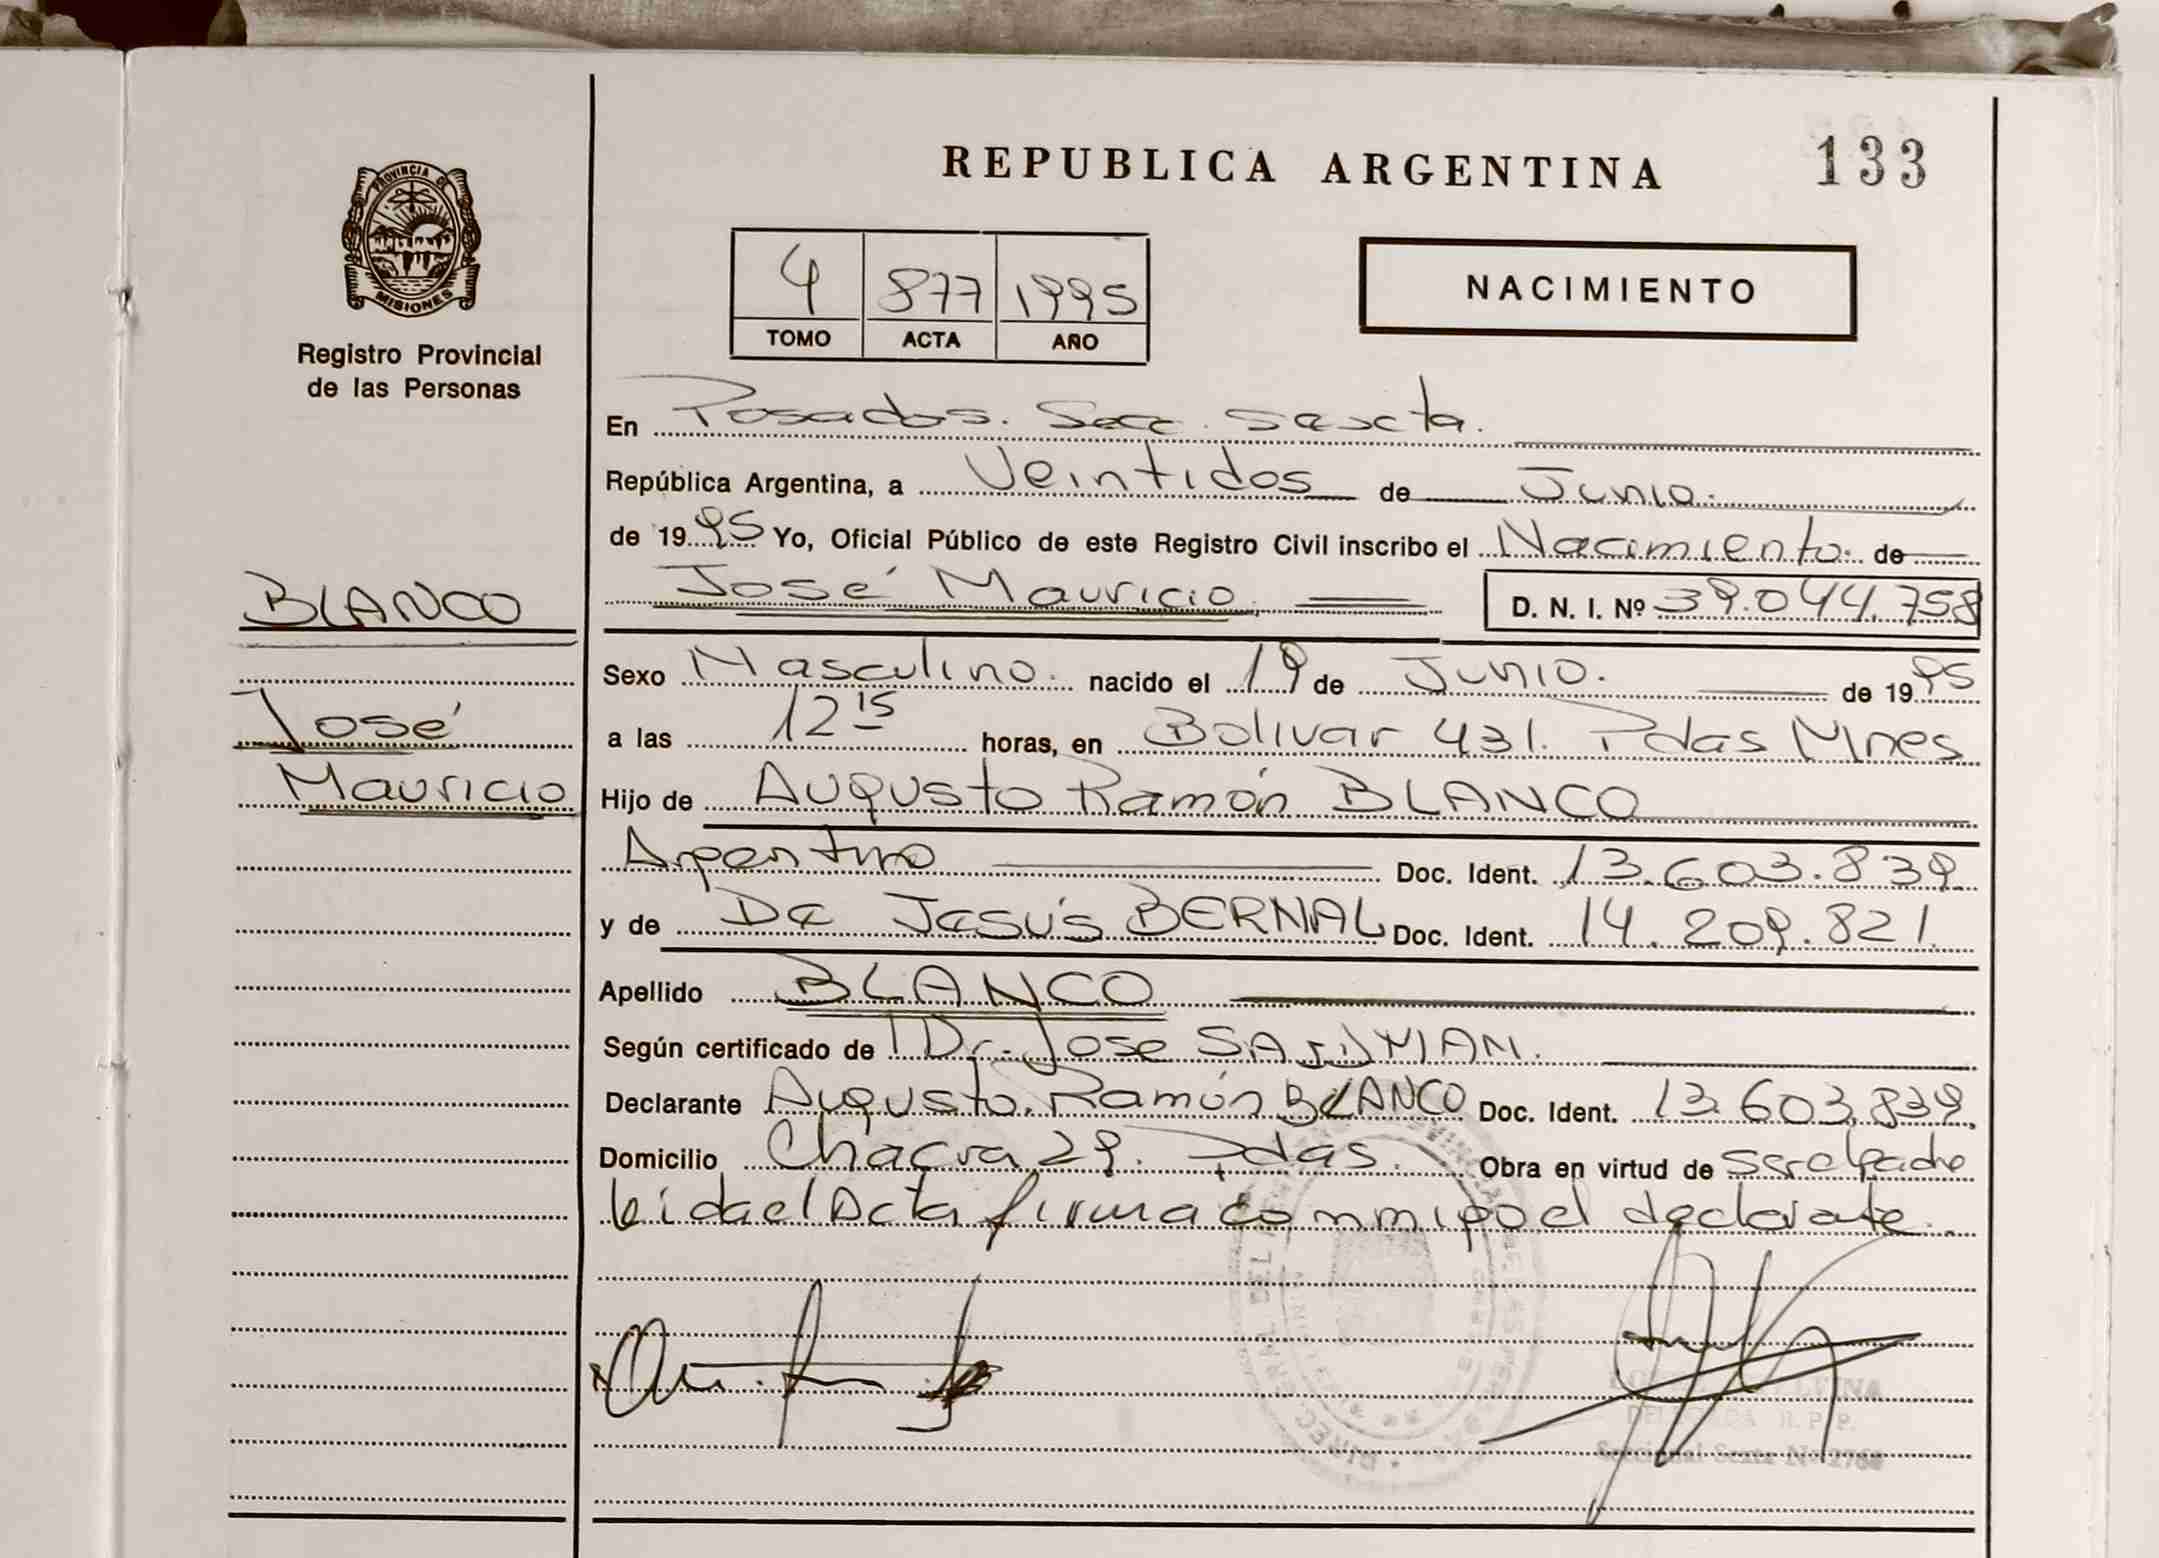 REPUBLICA ARGENTINA
133
PROVINCIA DE
MISIONES
Registro Provincial
de las Personas
4 877 1995
TOMO ACTA AÑO
NACIMIENTO
En Posadas. Secc. Sexta.
República Argentina, a Veintidos de Junio.
de 1995 Yo, Oficial Público de este Registro Civil inscribo el Nacimiento. de
José Mauricio. D. N. I. Nº 39.044.758
BLANCO
José
Mauricio
Sexo Masculino. nacido el 19 de Junio. de 1995
a las 12 15 horas, en Bolivar 431. Pdas Mnes
Hijo de Augusto Ramón BLANCO
Argentino Doc. Ident. 13.603.839.
y de De Jesús BERNAL Doc. Ident. 14.209.821.
Apellido BLANCO
Según certificado de Dr. Jose
Declarante Augusto Ramón BLANCO Doc. Ident. 13.603.839.
Domicilio Chacra 29. Pdas. Obra en virtud de ser el padre
leida el Acta firma conmigo el declarante.